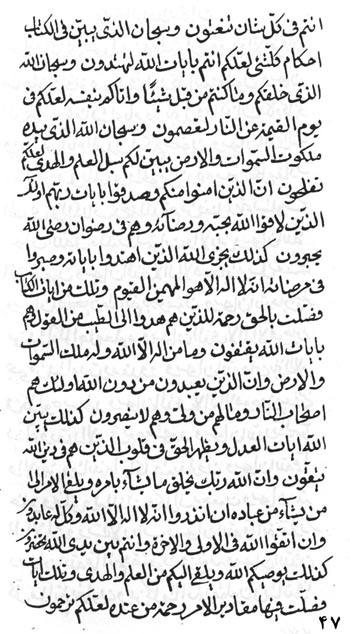 انتم فى كل شان تتقون وسبحان الذى يبين فى الكتاب
احكام كلشئ لعلكم انتم بايات الله تهتدون وسبحان الله
الذى خلقكم وما كنتم من قبل شيئا واناكم بنفسه لعلكم فى
يوم القيمة عن النار تعصمون وسبحان الله الذى بيده
ملكوت السموات والارض يبين لكم سبل العلم والهدى لعلكم
تفلحون ان الذين امنوا منكم وصدقوا بايات ربهم اولئك
الذين لاقوا الله بحبه ورضائه وهم فى رضوان رضى الله
يحبرون كذلك يجزى الله الذين اهتدوا باياته وصبروا
فى مرضاته انه لا اله الا هو المهيمن القيوم وتلك من ايات الكتاب
فصلت بالحق رحمة للذين هم هدوا الى الطيب من القول وهم
بايات الله يتقون وما من اله الا الله وله ملك السموات
والارض وان الذين يعبدون من دون الله اولئك هم
اصحاب النار وما لهم من ولى وهم لا ينصرون كذلك يبين
الله ايات العدل ويظهر الحق فى قلوب الذين هم فى دين الله
يتقون وان الله ربك يخلق ما يشاء بامره ويلقى الامر الى
من يشاء من عباده ان انذروا انه لا اله الا الله وكل له عابدون
وان اتقوا الله فى الاولى والاخرة وانتم بين يدى الله تحضرون
كذلك يوصيكم الله ويلقى اليكم من العلم والهدى وتلك ايات
فصلت فيها مقادير الامر رحمة من عنده لعلكم ترحمون
۴۷